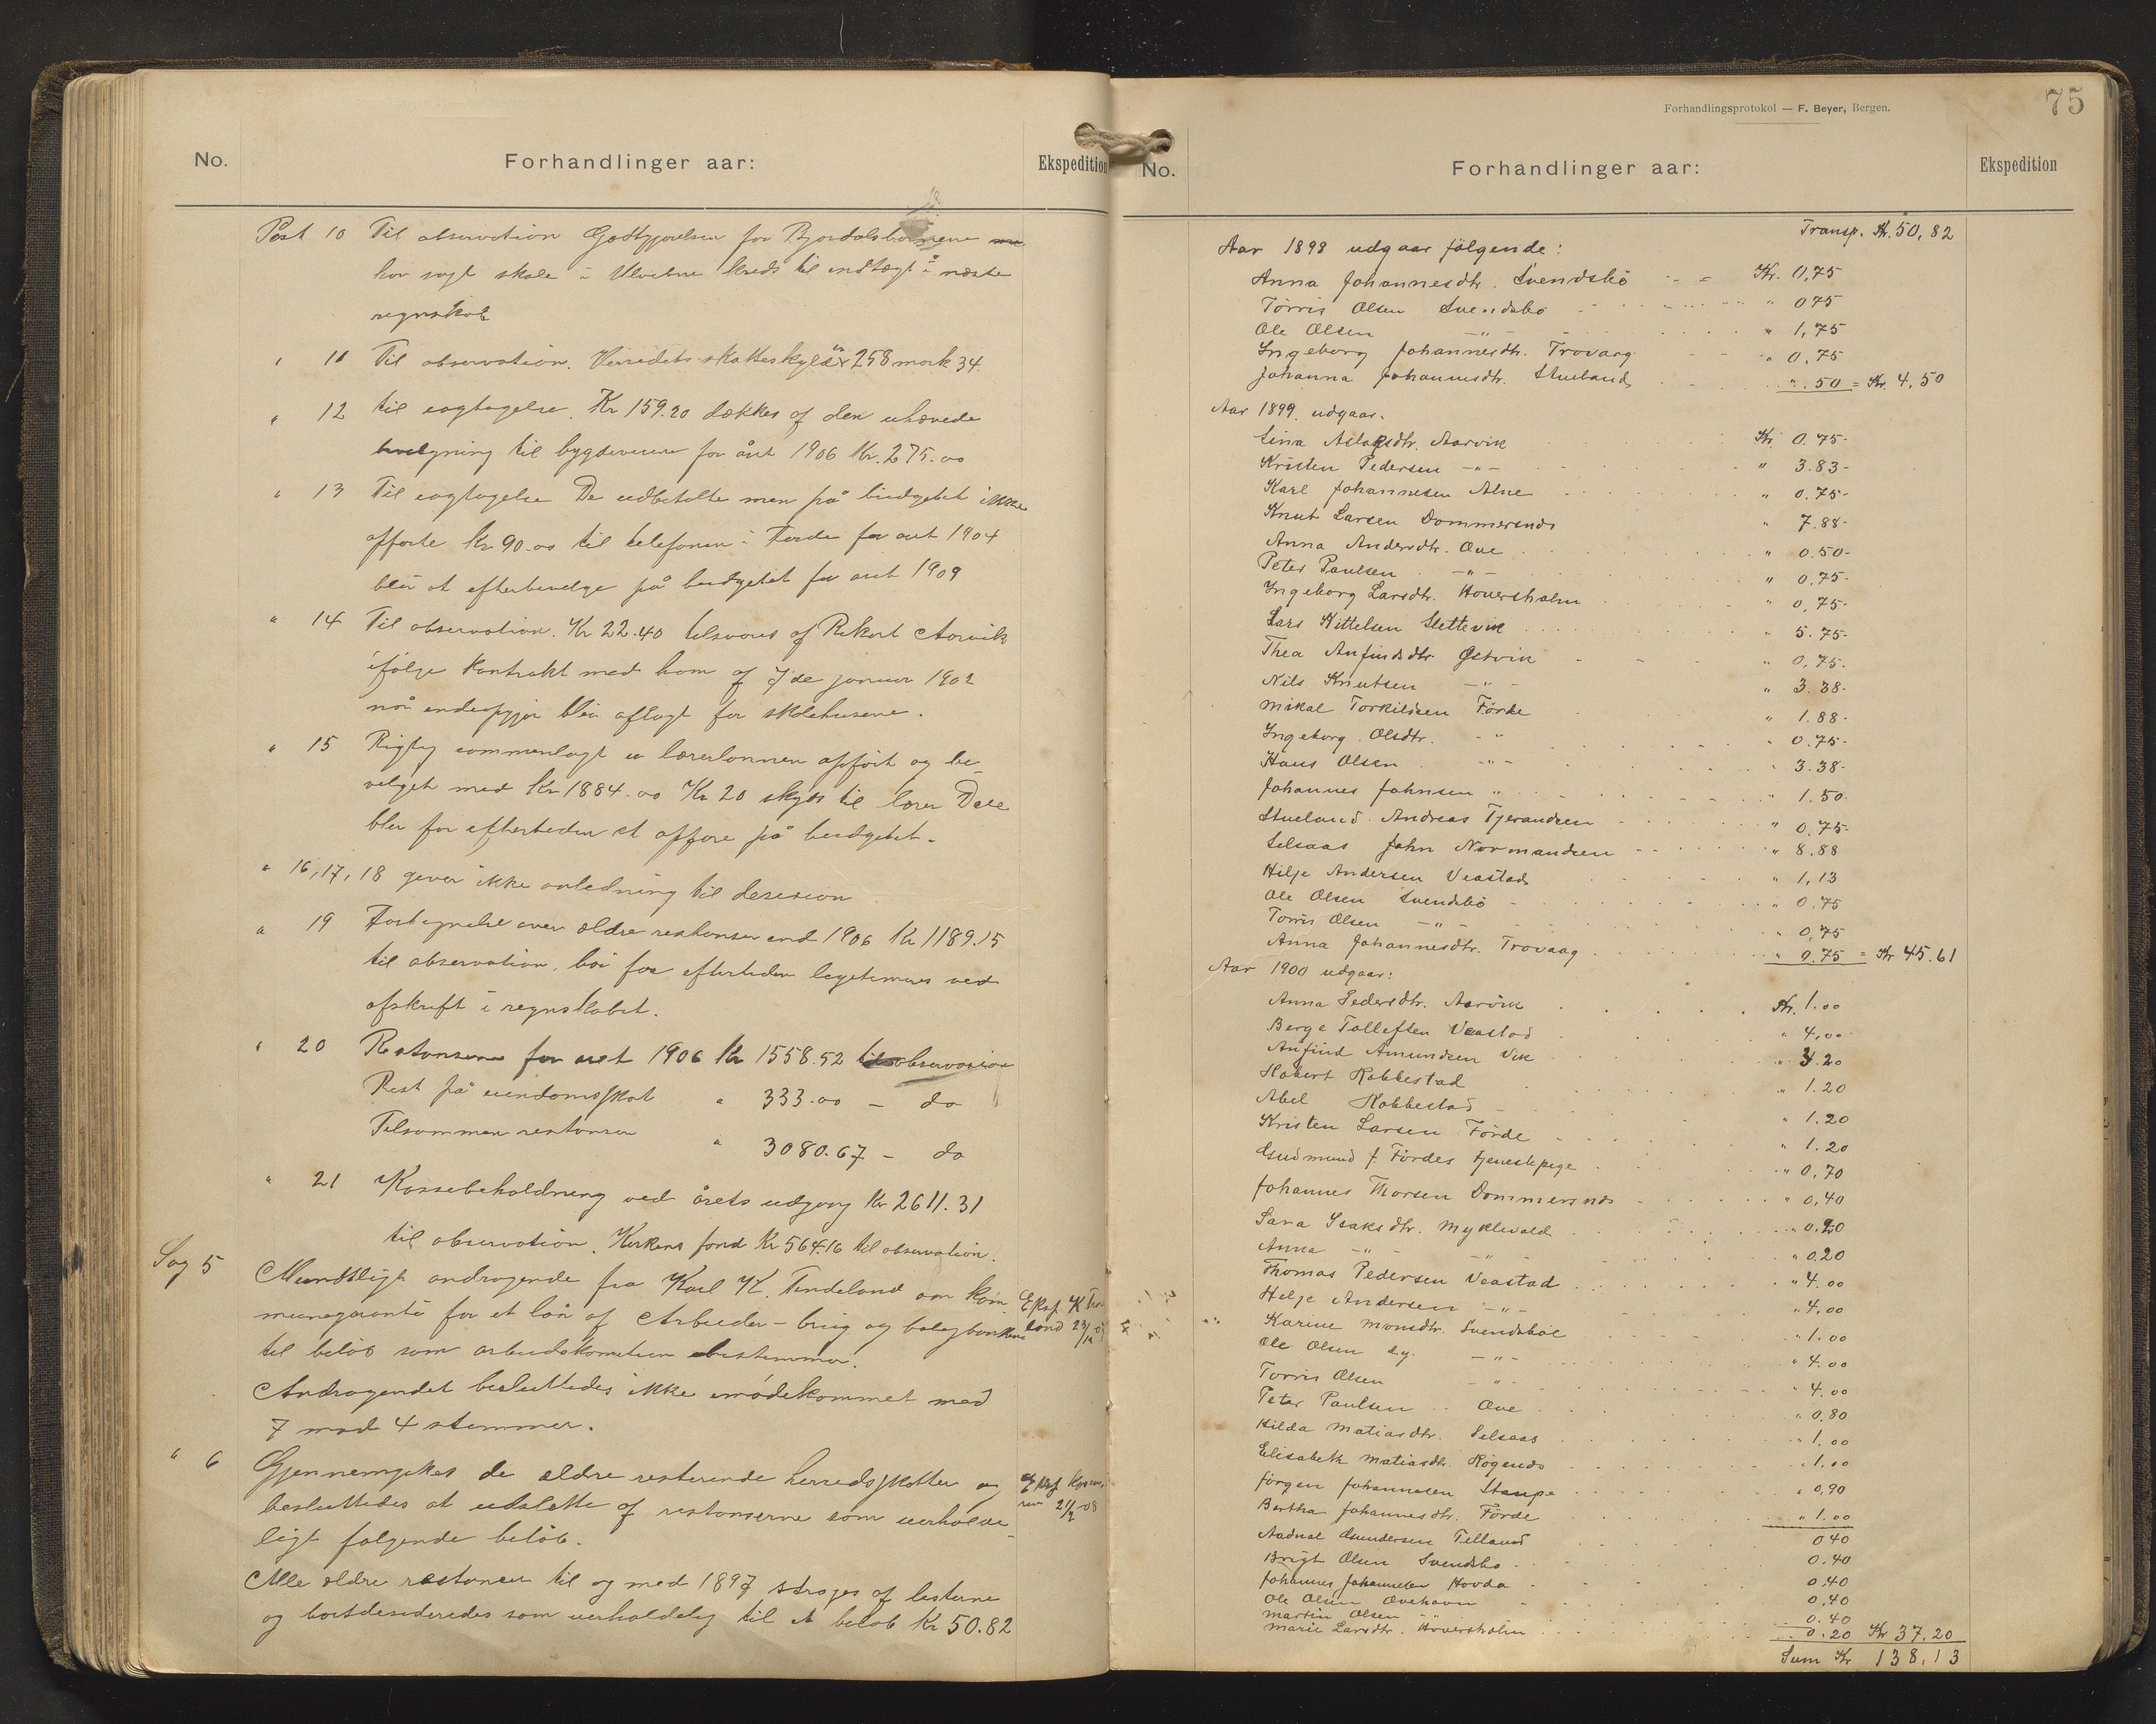 No. Forhandlinger aar: Ekspedition
Post 10 Til observation Godtgjørelsen for Bjordalsbørnene
har søgt skole i Ulvebne kreds til indtægt i næste
regnskab
" 11 Til observation. Herredets skatteskyld er 258 mark 34
" 12 til iagtagelse. Kr 159.20 dækkes af den uhævede
bevilgning til bygdeveiene for året 1906 Kr. 275.00
" 13 Til iagtagelse De udbetalte men på budgetet ikke
opførte Kr 90.00 til telefonen i Førde for aaret 1904
blir at efterbevilge på budgetet for aaret 1909
" 14 Til observation. Kr 22.40 tilsvares af Rikart Aarvik
ifølge kontrakt med ham af 7de januar 1902
når endeopgjør blir aflagt for skolehusene.
" 15 Rigtig sammenlagt er lærerlønnen opført og be-
vilget med Kr 1884.00 Kr 20 skyds til lærer Dale
blir for eftertiden at opføre på budgetet.
" 16, 17, 18 gever ikke anledning til desision
" 19 Fortegnelse over ældre restanser end 1906 Kr 1189.15
til observation, bør for eftertiden legitimeres ved
afskrift i regnskabet.
" 20 Restanserne for aaret 1906 Kr 1558.52 til observasion
Rest på eiendomsskat " 333.00 – do
Tilsammen restanser " 3080.67 – do
" 21 Kassebeholdning ved årets udgang Kr 2611.31
til observation. Kirkens fond Kr 564.16 til observation.
Sag 5 Mundtligt andragende fra Karl K. Tindeland om kom-
munegaranti for et lån af Arbeider-brug og boligbanken
til beløb som arbeidskomiteen bestemmer.
Ekspf K
land
Andragendet besluttedes ikke imødekommet med
7 mod 4 stemmer.
" 6 Gjennemgikes de ældre resterende herredsskatter og
besluttedes at udslette af restanserne som uerholde-
ligt følgende beløb.
Ekspf
21/2 08
Alle ældre restanser til og med 1897 strøges af listerne
og bortdesideredes som uerholdelig til et beløb Kr 50.82
75
Forhandlingsprotokol — F. Beyer, Bergen.
No. Forhandlinger aar: Ekspedition
Transp. Kr. 50,82
Aar 1898 udgaar følgende:
Anna Johannesdtr. Svendsbø Kr. 0,75
Torris Olsen Svendsbø " 075
Ole Olsen -"- " 1,75
Ingeborg Johannesdtr. Trovaag " 0,75
Johanna Johannesdtr. Stueland " .50 = Kr. 4,50
Aar 1899. udgaar.
Lina Aslagsdtr. Aarvik Kr. 0.75-
Kristen Pedersen -"- " 3.83-
Karl Johannesen Alne " 0.75-
Knut Larsen Dommersnes " 7.88-
Anna Andersdtr. Ove " 0.50-
Peter Paulsen -"- " 0.75-
Ingeborg Larsdtr. Hoversholm " 0,75-
Lars Kittelsen Slettevik " 5.75-
Thea Anfindsdtr. Østvik " 0,75-
Nils Knutsen -"- " 3.38-
Mikal Torkildsen Førde " 1.88-
Ingeborg Olsdtr. -" " 0.75-
Hans Olsen -"- " 3.38-
Johannes Johnsen " " 1.50.
Stueland. Andreas Tjerandsen " 0.75-
Selsaas John Normandsen " 8.88
Hilje Andersen Veastad " 1,13
Ole Olsen Svendsbø " 0.75
Torris Olsen -"- " 0,75
Anna Johannesdtr. Trovaag " 0.75 = Kr 45.61
Aar 1900 udgaar:
Anna Pedersdtr. Aarvik Kr. 1.00
Berge Tollefsen Veastad " 4.00
Anfind Amundsen Vik " 3.20
Hobert Robbestad " 1.20
Abel Robbestad " 1.20
Kristen Larsen Førde " 1.20
Gudmund J. Førdes tjenestepige " 0,70
Johannes Thorsen Dommersnes " 0,40
Sara Isaksdtr. Myklevold " 0.20
Anna -"- -"- " 0.20
Thomas Pedersen Veastad " 4.00
Helje Andersen -"- " 4,00
Karine Monsdtr. Svendsbøe " 1.00
Ole Olsen d.y. -"- " 4.00
Torris Olsen -"- " 4.00
Peter Paulsen Ove " 0,80
Hilda Matiasdtr. Selsaas " 1.00
Elisabeth Matiasdtr. Røgends " 1.00
Jørgen Johannesen Staupe " 0,90
Bertha Johannesdtr. Førde " 1.00
Aadnal Gundersen Telland 0.40
Brigt Olsen Svendsbø 0.40
Johannes Johannesen Hovda 0.40
Ole Olsen Ovehavn 0.40
Martin Olsen -"- 0.40
Marie Larsdtr. Hoversholm 0.20 Kr 37.20
Sum Kr 138,13